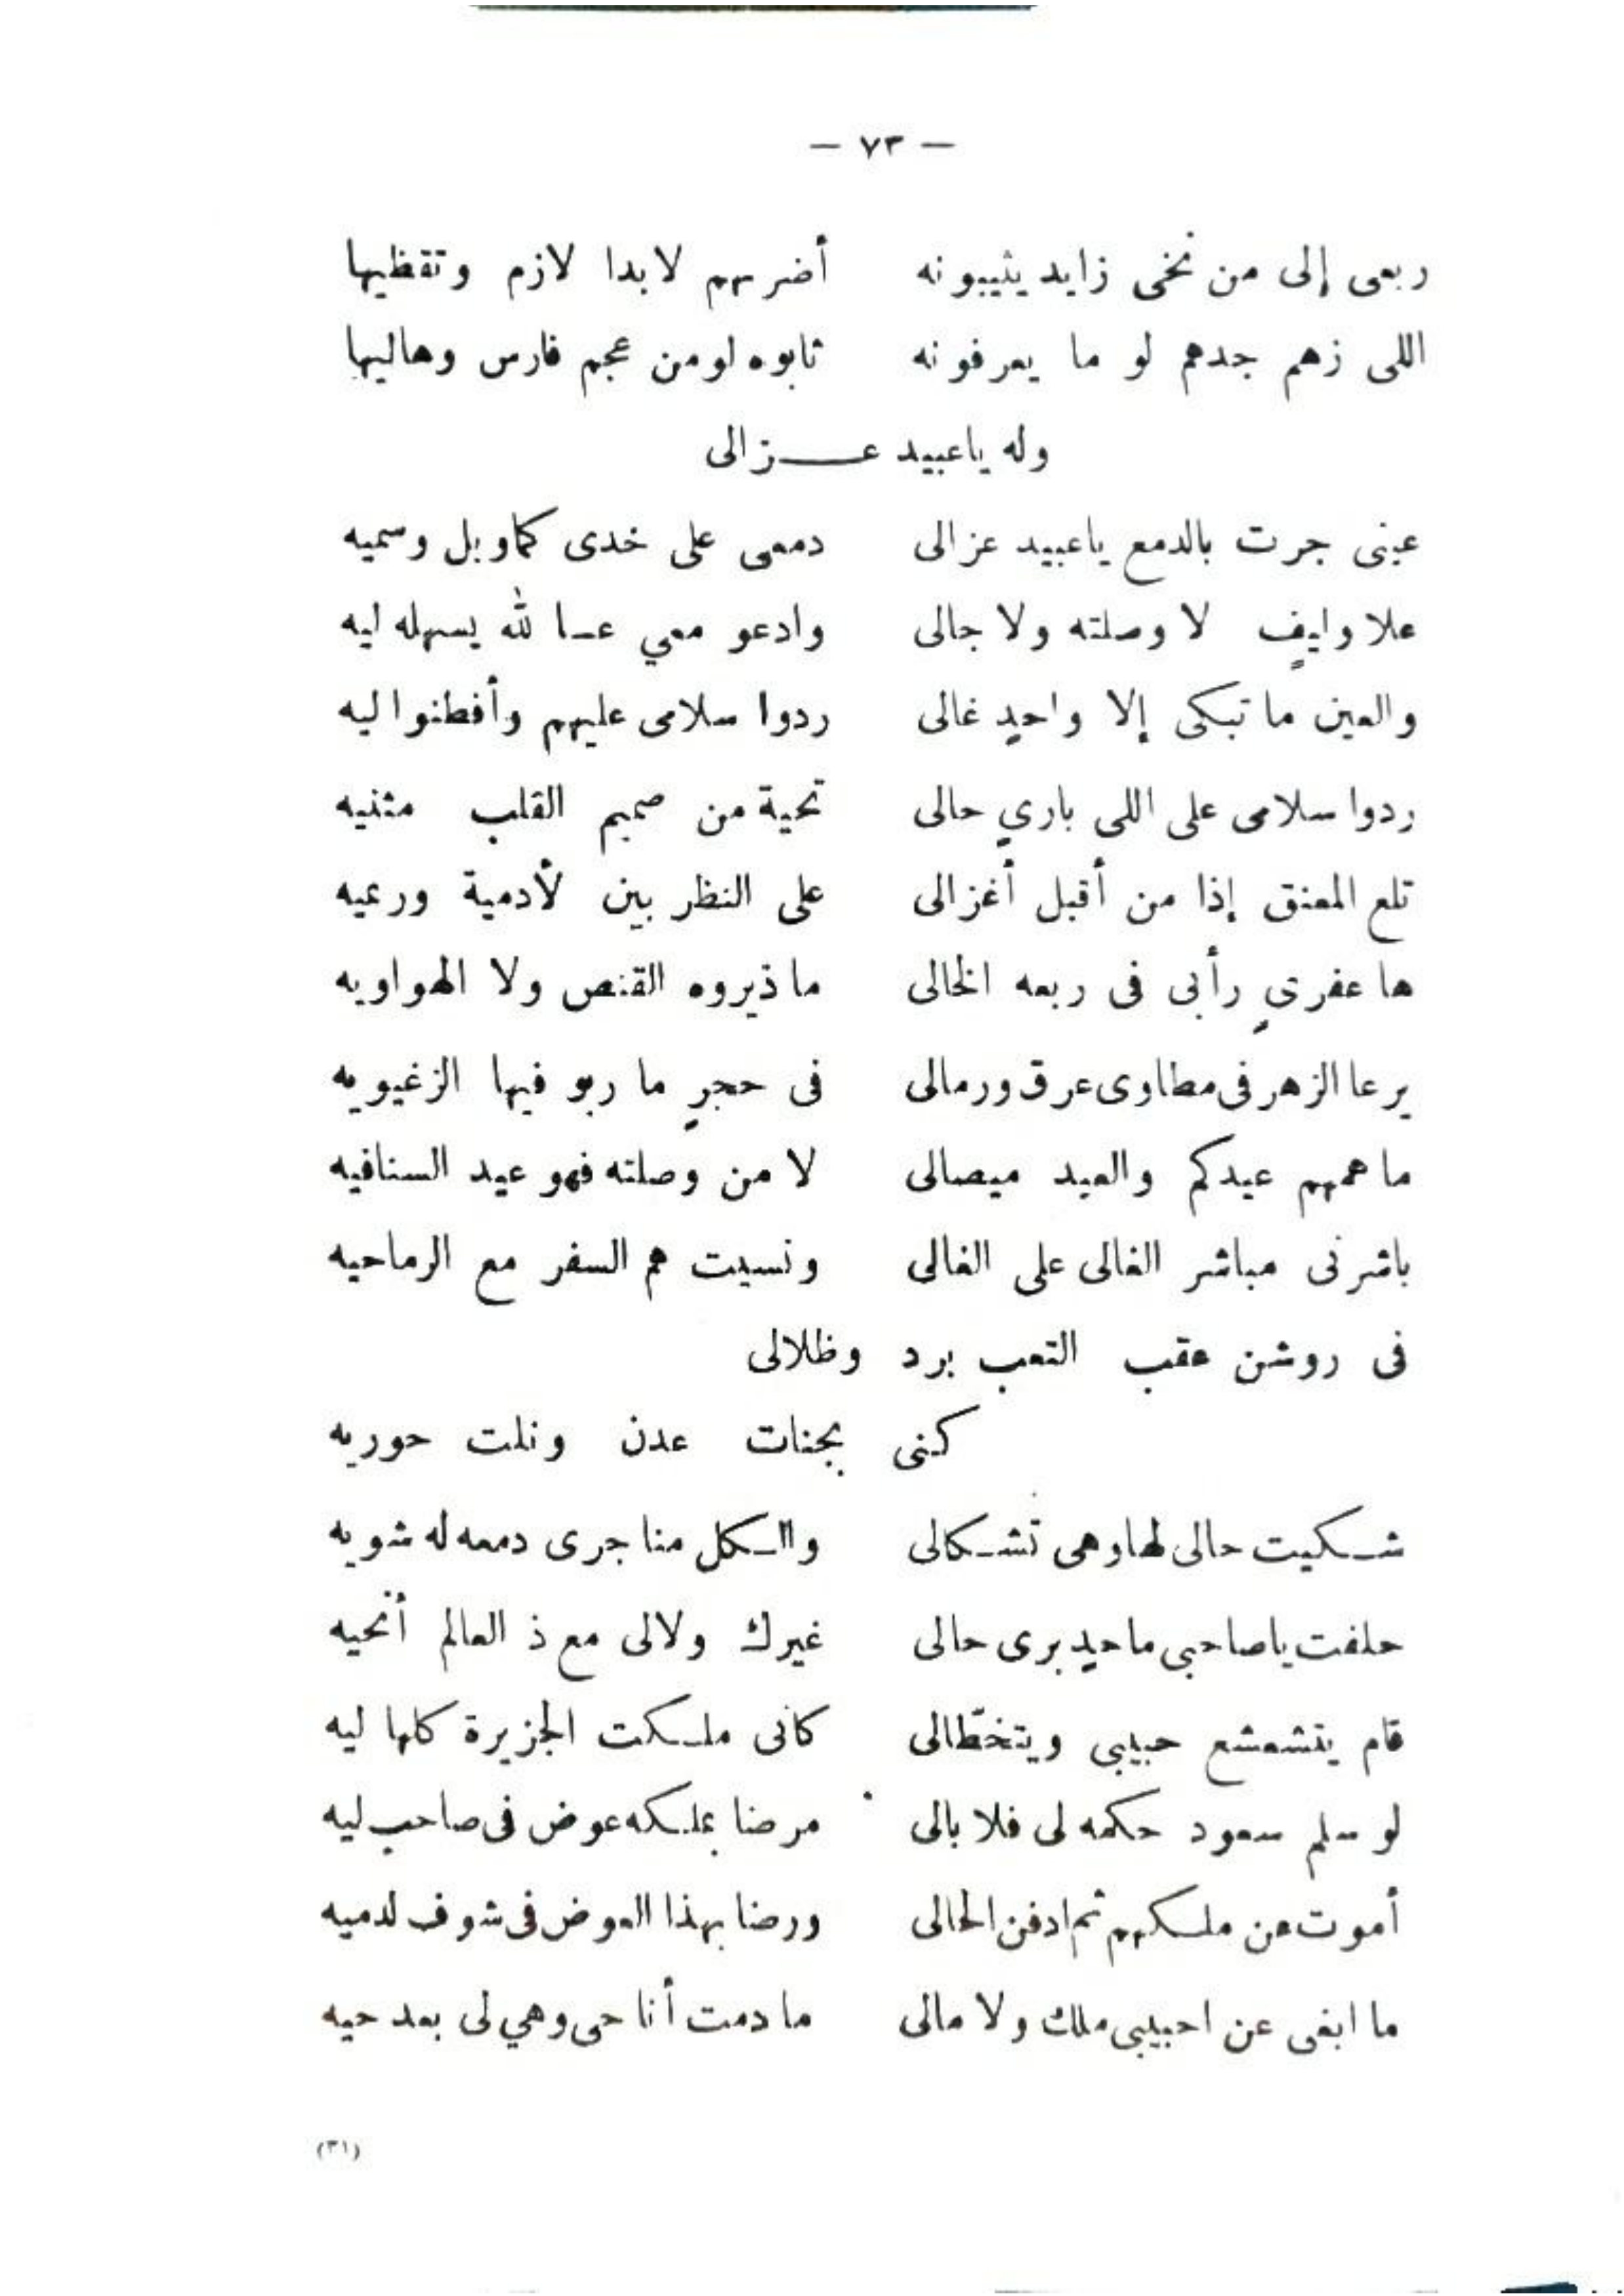 — ٧٣ —
ربعى إلى من نخى زايد يثيبونه أضربهم لابدا لازم وتقظيها
اللى زهم جدهم لو ما يعرفونه ثابوه لو من عجم فارس وهاليها
وله ياعبيد عـــزالى
عينى جرت بالدمع ياعبيد عزالى دمعى على خدى كماوبل وسميه
علا وايفٍ لا وصلته ولا جالى وادعو معي عسا لله يسهله ليه
والعين ما تبكى إلا واحدٍ غالى ردوا سلامى عليهم وأفطنوا ليه
ردوا سلامى على اللى باريٍ حالى تحية من صميم القلب مثنيه
تلع المعنق إذا من أقبل أغزالى على النظر بين لأدمية ورعيه
ها عفريٍ رأبى فى ربعه الخالى ما ذيروه القنص ولا الهواويه
يرعا الزهر فى مطاوى عرق ورمالى فى حجرٍ ما ربو فيها الزغيويه
ما همهم عيدكم والعيد ميصالى لا من وصلته فهو عيد السنافيه
باشرنى مباشر الغالى على الغالى ونسيت هم السفر مع الرماحيه
فى روشن عقب التعب برد وظلالى
كنى بجنات عدن ونلت حوريه
شكيت حالى لها وهى تشكالى والكل منا جرى دمعه له شويه
حلفت ياصاحبى ماحيدٍ برى حالى غيرك ولالى مع ذ العالم أنحيه
قام يتشعشع حبيبى ويتخطّالى كانى ملكت الجزيرة كلها ليه
لو سلم سعود حكمه لى فلا بالى مرضا بملكه عوض فى صاحب ليه
أموت عن ملكهم ثم ادفن الحالى ورضنا بهذا العوض فى شوف لدميه
ما ابغى عن احبيبى ملك ولا مالى ما دمت أنا حى وهي لى بعد حيه
(٣١)